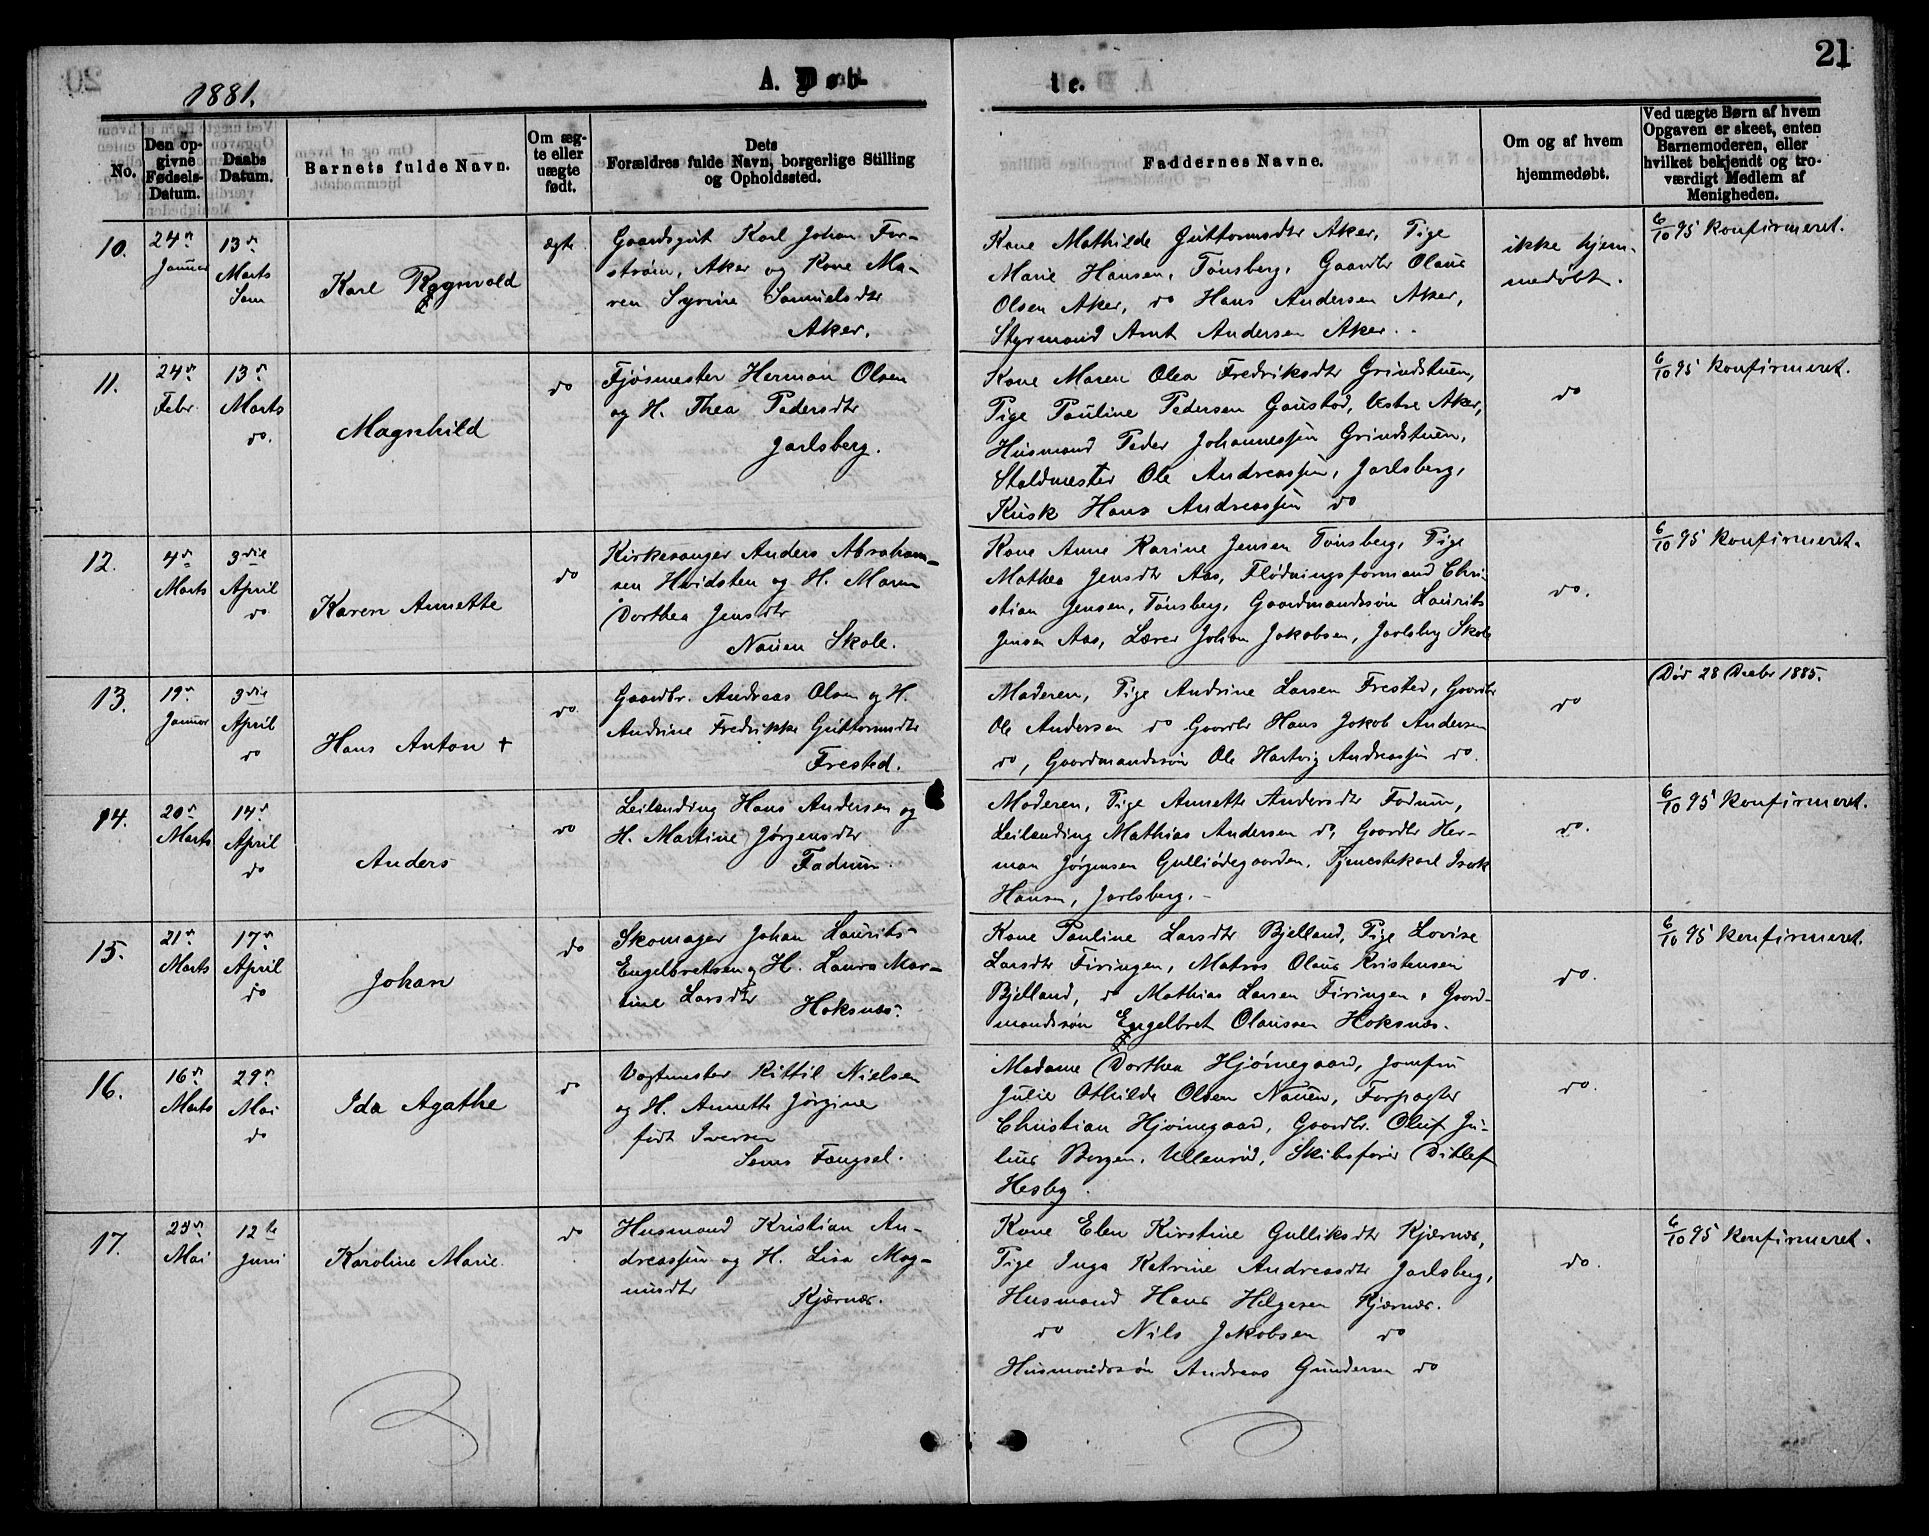 21
1881.
A. Døb-
te.
No.
Den op-
givne
Fødsels-
Datum.
Daabs
Datum.
Barnets fulde Navn.
Om æg-
te eller
uægte
født.
Dets
Forældres fulde Navn, borgerlige Stilling
og Opholdssted.
Faddernes Navne.
Om og af hvem
hjemmedøbt.
Ved uægte Børn af hvem
Opgaven er skeet, enten
Barnemoderen, eller
hvilket bekjendt og tro-
værdigt Medlem af
Menigheden.
10.
24de
Januar
13de
Marts
Sem
Karl Ragnvald
ægte.
Gaardsgut Karl Johan For-
strøm, Aker og Kone Ma-
ren Syrine Samuelsdtr
Aker.
Kone Mathilde Guttormsdtr Aker, Pige
Marie Hansen, Tønsberg, Gaardbr Olaus
Olsen Aker, do Hans Andersen Aker,
Styrmand Amt Andersen Aker.
ikke hjem-
medøbt.
6/10 95 konfirmeret.
11.
24de
Febr.
13de
Marts
do.
Magnhild
do
Fjøsmester Herman Olsen
og H. Thea Pedersdtr
Jarlsberg.
Kone Maren Olea Fredriksdtr Grindstuen,
Pige Pauline Pedersen Gaustad, Vestre Aker,
Husmand Peder Johannessen Grindstuen,
Staldmester Ole Andreassen, Jarlsberg,
Kusk Hans Andreassen do
do
6/10 95 konfirmeret.
12.
4de
Marts
3die
April
do
Karen Annette
do
Kirkesanger Anders Abraham-
sen Hvidsten og H. Maren
Dorthea Jensdtr
Nauen Skole.
Kone Anne Karine Jensen Tønsberg, Pige
Mathea Jensdtr Aas, Flødningsformand Chri-
stian Jensen, Tønsberg, Gaardmandssøn Laurits
Jensen Aas, Lærer Johan Jakobsen, Jarlsberg Skole
do.
6/10 95 konfirmeret.
13.
19de
Januar
3die
April
do
Hans Anton +
do
Gaardbr. Andreas Olsen og H.
Andrine Fredrikke Guttormsdtr
Frested.
Moderen, Pige Andrine Larsen Frested, Gaardbr
Ole Andersen do Gaardbr Hans Jakob Andersen
do, Gaardmandssøn Ole Hartvig Andreassen do.
do
Død 28 Decbr 1885.
14.
20de
Marts
14de
April
do
Anders
do
Leilending Hans Andersen og
H. Martine Jørgensdtr
Fadum.
Moderen, Pige Annette Andersdtr Fadum,
Leilending Mathias Andersen do, Gaardbr Her-
man Jørgensen Gulliødegaarden, Tjenestekarl Isak
Hansen, Jarlsberg.
do.
6/10 95 konfirmeret.
15.
21de
Marts
17de
April
do
Johan
do
Skomager Johan Laurits
Engelbretsen og H. Laura Mar-
tine Larsdtr
Hoksnæs.
Kone Pauline Larsdtr Bjelland, Pige Lovise
Larsdtr Firingen, Matros Olaus Kristensen
Bjelland, do Mathias Larsen Firingen, Gaard-
mandssøn Engelbret Olaussen Hoksnæs.
do.
6/10 95 konfirmeret.
16.
16de
Marts
29de
Mai
do
Ida Agathe
do
Vagtmester Kittil Nielsen
og H. Annette Jørgine
født Iversen
Sems Fængsel.
Madame Dorthea Hjørnegaard, Jomfru
Julie Othilde Olsen Nauen, Forpagter
Christian Hjørnegaard, Gaardbr. Oluf Ju-
lius Borgen, Ullensrud, Skibsfører Ditlef
Hesby.
do.
17.
23de
Mai
12te
Juni
Karoline Marie.
do
Husmand Kristian An-
dreassen og H. Lisa Mag-
nusdtr
Kjærnæs.
Kone Elen Kirstine Gulliksdtr Kjærnæs,
Pige Inga Katrine Andreasdtr Jarlsberg,
Husmand Hans Helgesen Kjærnæs.
do Nils Jakobsen do
Husmandssøn Andreas Gundersen do
do.
6/10 95 konfirmeret.